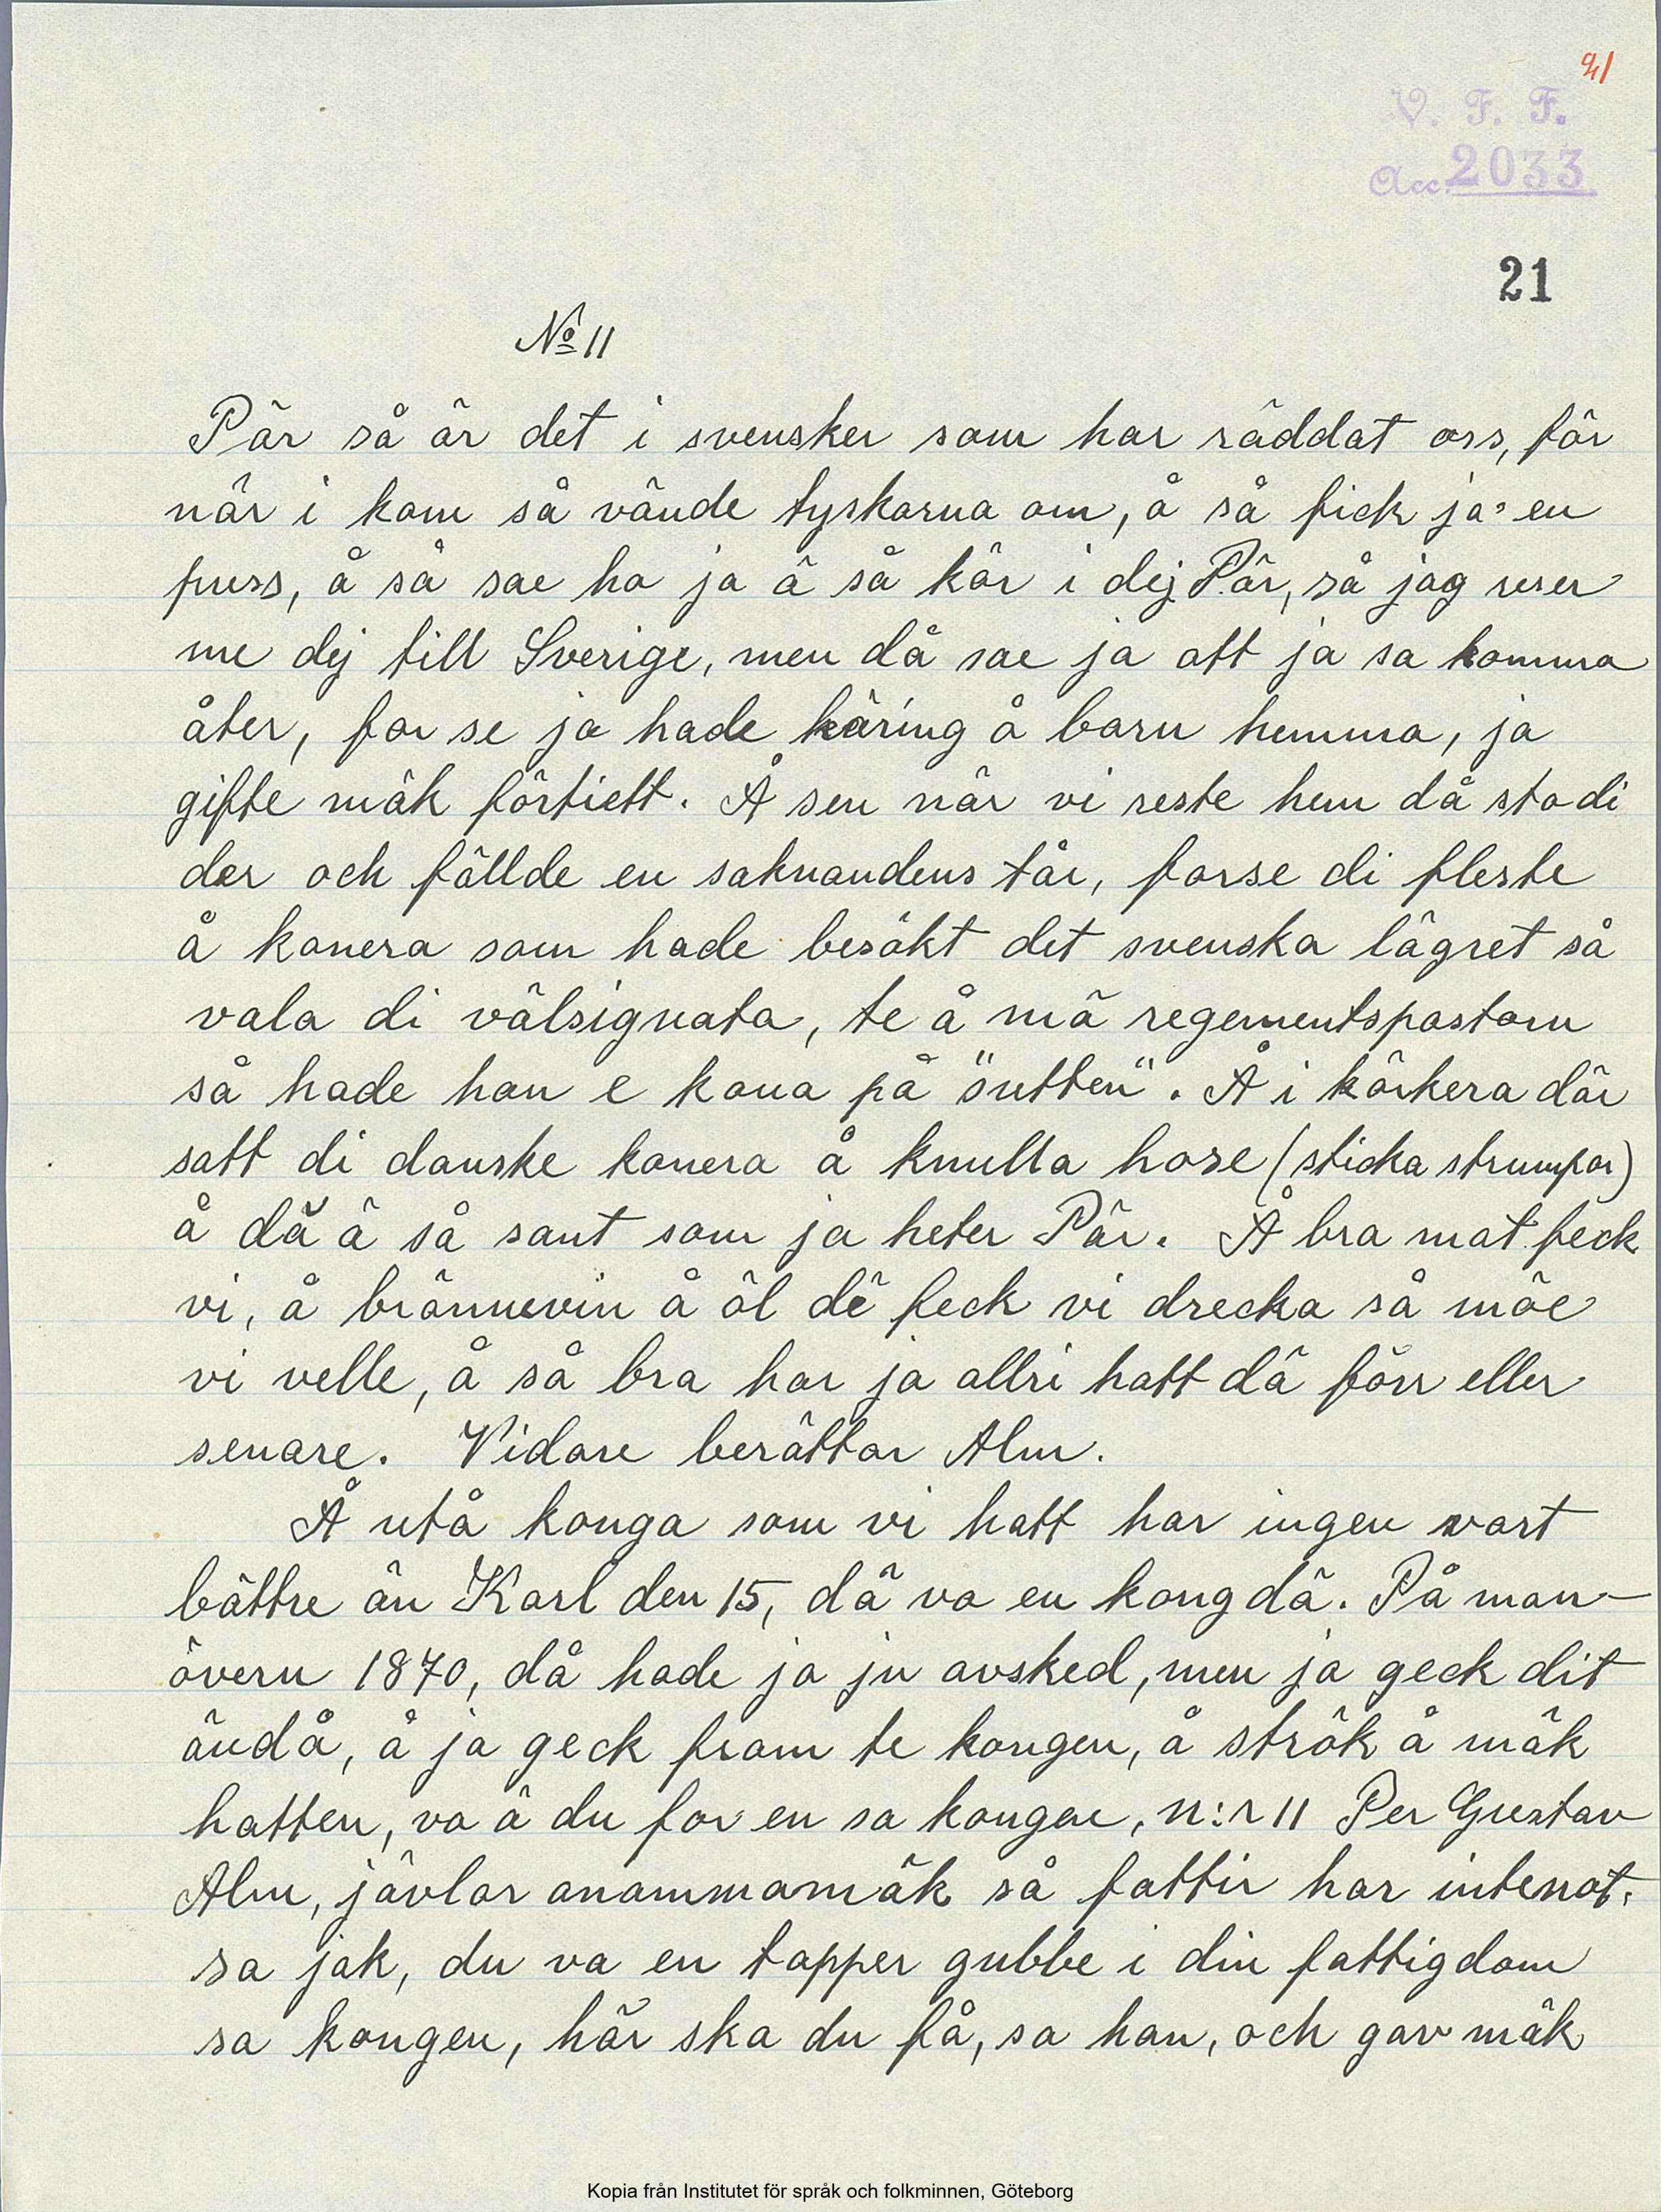 21
V. F. F.
Acc. 2033
21
No 11
Pär så är det i svensker som har räddat oss, för
när i kom så vände tyskarna om, å så fick ja en
puss, å så sae ho ja ä så kär i dej Pär, så jag reser
me dej till Sverige, men då sae ja att ja sa komma
åter, for se ja hade käring å barn hemma, ja
gifte mäk förtiett. Å sen när vi reste hem då sto di
der och fällde en saknandens tår, forse di fleste
å konera som hade besökt det svenska lägret så
vala di välsignata, te å mä regementspastorn
så hade han e kona på "sutten". Å i körkera där
satt di danske konera å knulla hose (sticka strumpor)
å dä ä så sant som ja heter Pär. Å bra mat feck
vi, å brännevin å öl dë feck vi drecka så möe
vi velle, å så bra har ja allri hatt dä förr eller
senare. Vidare berättar Alm.
Å utå konga som vi hatt har ingen vart
bättre än Karl den 15, dä va en kong dä. På man-
övern 1870, då hade ja ju avsked, men ja geck dit
ändå, å ja geck fram te kongen, å strök å mäk
hatten, va ä du for en sa kongen, n:r 11 Per Gustav
Alm, jävlar anammamäk så fattir har intenot.
sa jak, du va en tapper gubbe i din fattigdom
sa kongen, här ska du få, sa han, och gav mäk
Kopia från Institutet för språk och folkminnen, Göteborg